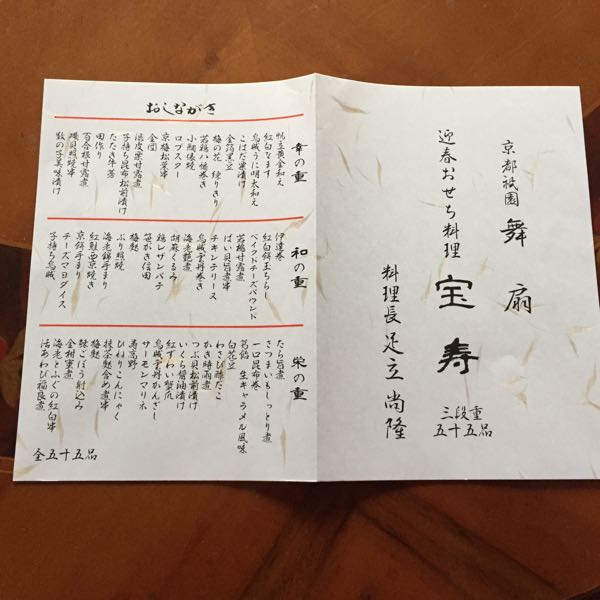 京都祇園 舞扇
迎春おせち料理 宝寿
三段重
五十五品
料理長 足立 尚隆
おしながき
幸の重
帆立黄金和え
紅白なます
烏賊うに明太和え
こはだ粟漬け
金箔黒豆
梅の花 絞りきり
若鶏八幡巻き
小鯛俵焼
ロブスター
京梅松葉串
金団
渋皮栗甘露煮
子持ち昆布松前漬け
たたき牛蒡
田作り
百合根甘露煮
磯貝照焼串
数の子美味漬け
和の重
伊達巻
紅白餅玉ちらし
ベイクドチーズパウンド
若鶏甘露煮
ばい貝旨煮串
チキンテリーヌ
烏賊雲丹巻き
海老艶煮
胡麻くるみ
鶏レザンパテ
笹がき信田
梅麩
ぶり照焼
海老錦手まり
紅鮭西京焼き
京錦手まり
チーズマヨダイス
子持ち烏賊
栄の重
たら旨煮
さつまいもしっとり煮
一口昆布巻
若鮎 生キャラメル風味
白花豆
わさび酢だこ
かき時雨煮
つぶ貝松前漬け
いくら醤油漬け
紅ずわい蟹爪
烏賊雲丹かんざし
サーモンマリネ
寿高野
ひねりこんにゃく
抹茶麩含め煮串
梅麩
鰊ごぼう射込み
金柑蜜煮
海老とふの紅白串
活あわび福良煮
全五十五品